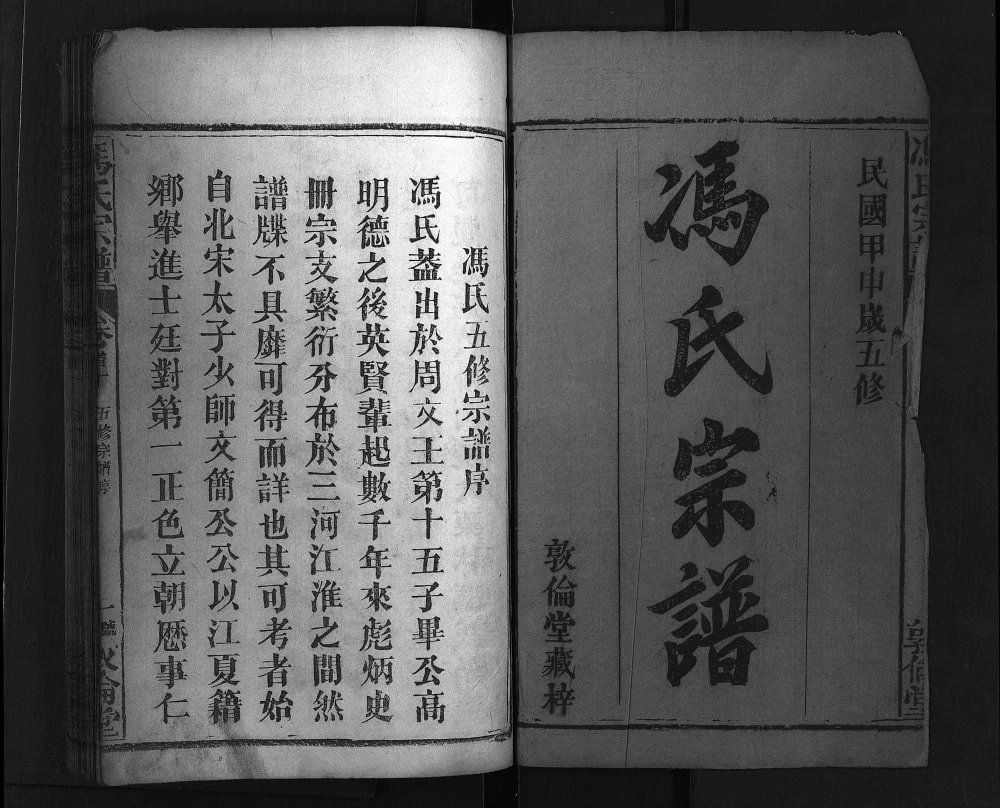 民國甲申歲五修
馮氏宗譜
敦倫堂藏梓
敦倫堂
馮氏五修宗譜序
馮氏葢出於周文王第十五子畢公高
明德之後英賢輩起數千年來彪炳史
冊宗支繁衍分布於三河江淮之間然
譜牒不具靡可得而詳也其可考者始
自北宋太子少師文簡公公以江夏籍
鄉舉進士廷對第一正色立朝歷事仁
馮氏宗譜
五修宗譜序